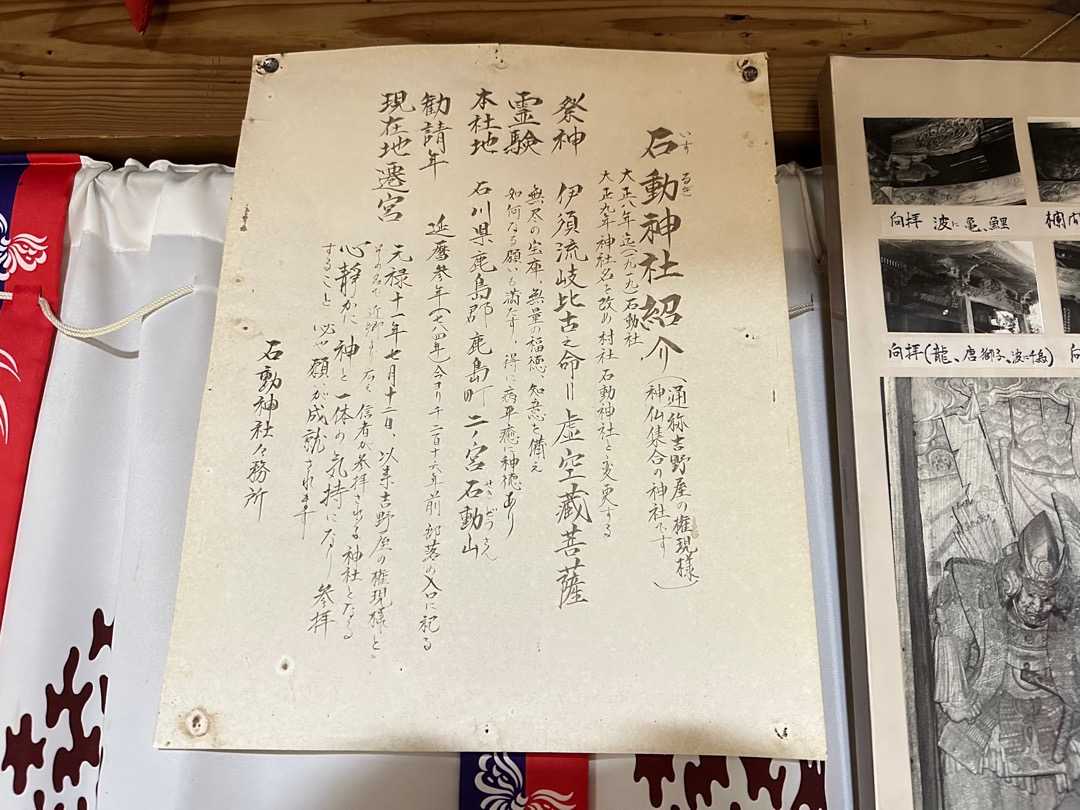 石動神社紹介
いするぎ
(通弥吉野屋の権現様)
神仏集合の神社です
大正八年迄一九九一石動社
大正九年神社名を改め村社石動神社と変更する
祭神 伊須流岐比古之命〃虚空蔵菩薩
霊験 無尽の宝庫、無量の福徳、知恵を備え
如何なる願いも満たす、得に病平癒に神徳あり
本社地 石川県鹿島郡鹿島町二ノ宮石動山
せきどうさん
勧請年 延暦参年(七八四年)今ヨリ千二百十六年前 部落の入口に祀る
現在地遷宮 元禄十一年七月十二日、以来吉野屋の権現様と
信者が参拝される神社となる
心静かに神と一体の気持になり 参拝
すること 必ず願が成就されます
石動神社々務所
向拝 波に亀、鯉
欄間
向拝(龍、唐獅子、波に千鳥)
向